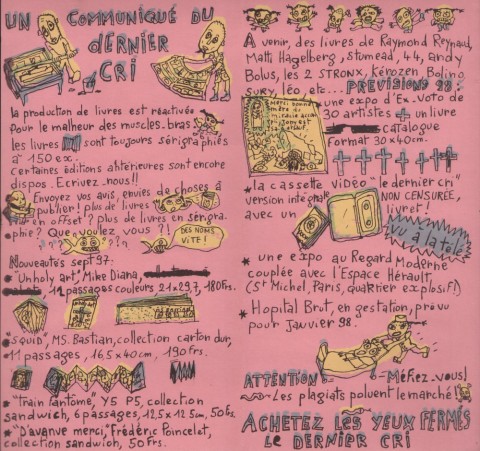 UN COMMUNIQUÉ DU
dERNiER
CRi
la production de livres est réactivée
Pour le malheur des muscles-bras
les livres sont toujours sérigraphiés
à 150 ex.
Certaines éditions antérieures sont encore
dispos. Ecrivez-nous!!
Envoyez vos avis, envies de choses à
publier! plus de livres
en offset? plus de livres en sérigra-
phie? Que voulez vous?!
DES NOMS
VITE!
Nouveautés sept 97:
* "Unholy art", Mike Diana,
12 passages couleurs 21x29,7, 180Frs.
* "SQUID", M.S. Bastian, collection carton dur,
11 passages, 16,5x40cm, 190frs.
* "Train fantôme", Y5 P5, collection
sandwich, 6 passages, 12,5x12,5cm, 50Frs.
* "D'avance merci," Frédéric Poincelet,
collection sandwich, 50Frs.
A venir, des livres de Raymond Reynaud,
Matti Hagelberg, Stumead, 44, andy
Bolus, les 2 STRONX, Kérozen Bolino,
SURY, léo, etc...
PREVISIONS 98:
une expo d'Ex-Voto de
30 artistes + un livre
catalogue
Format 30x40cm.
* la cassette VIDÉO "le dernier cri"
version intégrale NON CENSURÉE,
avec un livret!
VU à la télé
* une expo au Regard Moderne
couplée avec l'Espace Hérault,
(St Michel, Paris, quartier explosif!)
* Hopital Brut, en gestation, prévu
pour Janvier 98.
ATTENTION Méfiez-vous!
Les plagiats polluent le marché!
ACHETEZ LES YEUX FERMÉS
LE DERNIER CRI